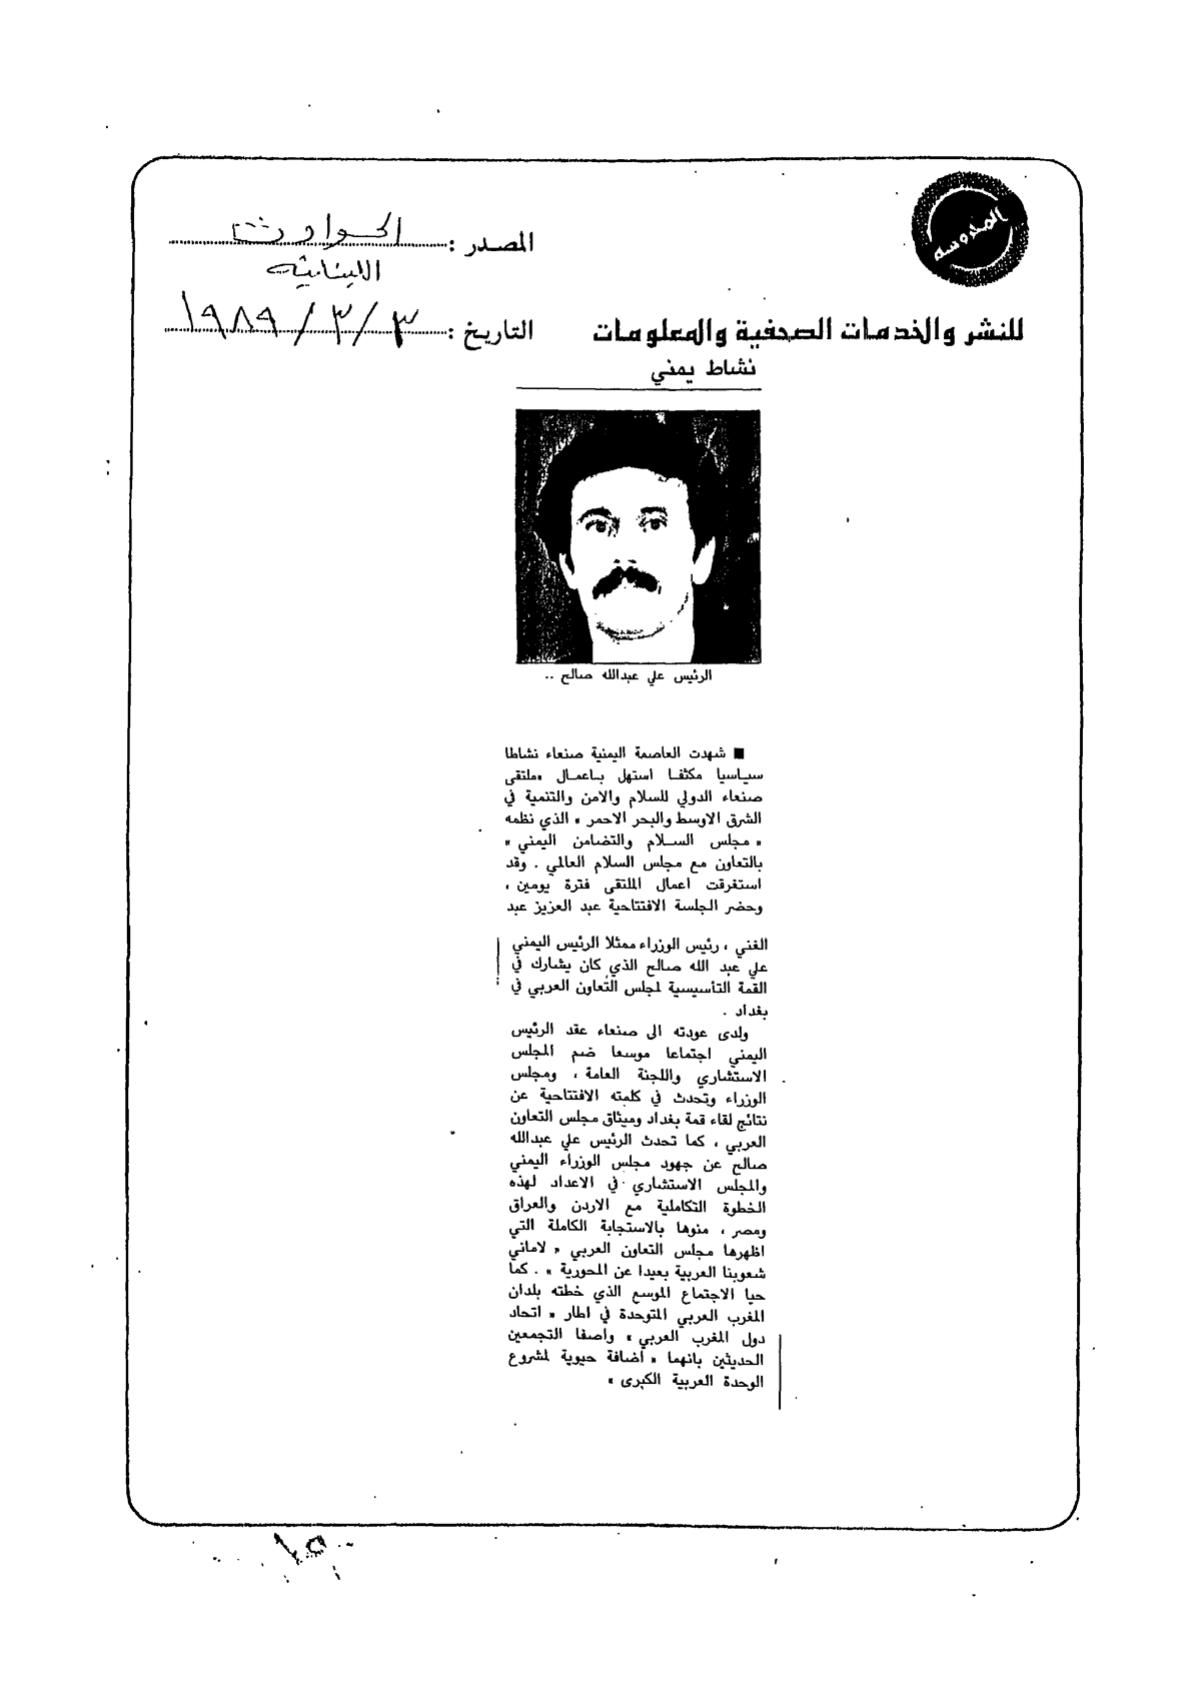 المحروسة
المصدر : الحوادث
اللبنانية
للنشر والخدمات الصحفية والمعلومات
التاريخ : ٣ / ٣ / ١٩٨٩
نشاط يمني
الرئيس علي عبدالله صالح ..
■ شهدت العاصمة اليمنية صنعاء نشاطا
سياسيا مكثفا استهل باعمال «ملتقى
صنعاء الدولي للسلام والامن والتنمية في
الشرق الاوسط والبحر الاحمر » الذي نظمه
« مجلس السلام والتضامن اليمني »
بالتعاون مع مجلس السلام العالمي . وقد
استغرقت اعمال الملتقى فترة يومين ،
وحضر الجلسة الافتتاحية عبد العزيز عبد
الغني ، رئيس الوزراء ممثلا الرئيس اليمني
علي عبد الله صالح الذي كان يشارك في
القمة التأسيسية لمجلس التعاون العربي في
بغداد .
ولدى عودته الى صنعاء عقد الرئيس
اليمني اجتماعا موسعا ضم المجلس
الاستشاري واللجنة العامة ، ومجلس
الوزراء وتحدث في كلمته الافتتاحية عن
نتائج لقاء قمة بغداد وميثاق مجلس التعاون
العربي ، كما تحدث الرئيس علي عبدالله
صالح عن جهود مجلس الوزراء اليمني
والمجلس الاستشاري في الاعداد لهذه
الخطوة التكاملية مع الاردن والعراق
ومصر ، منوها بالاستجابة الكاملة التي
اظهرها مجلس التعاون العربي « لاماني
شعوبنا العربية بعيدا عن المحورية » . كما
حيا الاجتماع الموسع الذي خطته بلدان
المغرب العربي المتوحدة في اطار « اتحاد
دول المغرب العربي » واصفا التجمعين
الحديثين بانهما « أضافة حيوية لمشروع
الوحدة العربية الكبرى »